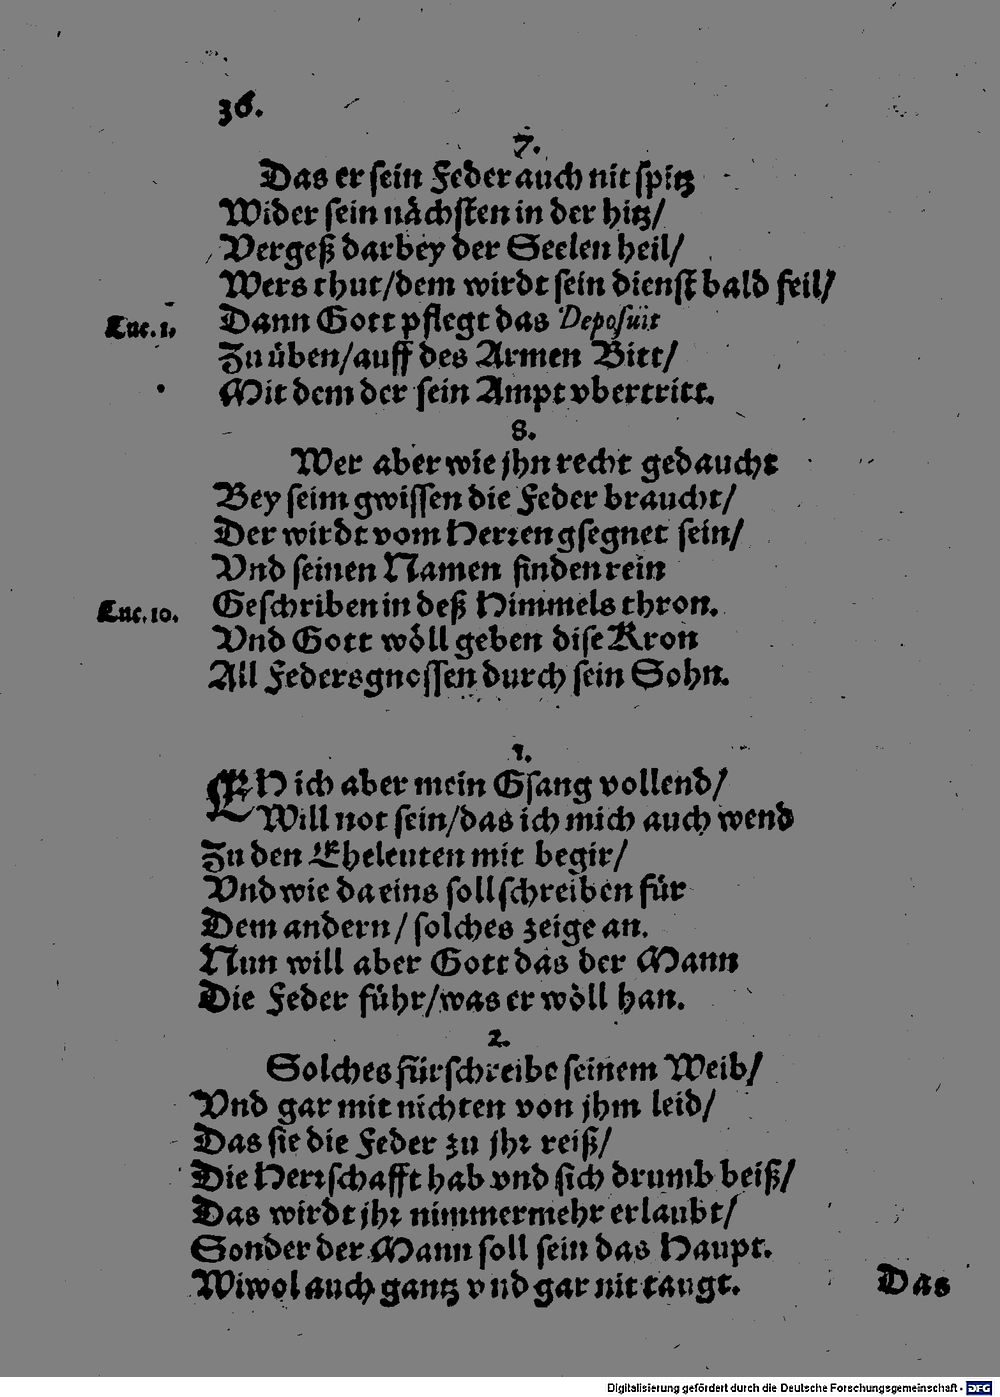 36.
7.
Das er sein Feder auch nit spitz
Wider sein nächsten in der hitz/
Vergeß darbey der Seelen heil/
Wers thut/dem wirdt sein dienst bald feil/
Luc. 1. Dann Gott pflegt das Deposuit
Zu üben/auff des Armen Bitt/
Mit dem der sein Ampt vbertritt.
8.
Wer aber wie jhn recht gedaucht
Bey seim gwissen die Feder braucht/
Der wirdt vom Herren gsegnet sein/
Vnd seinen Namen finden rein
Luc. 10. Geschriben in deß Himmels thron.
Vnd Gott wöll geben dise Kron
All Federsgnossen durch sein Sohn.
1.
EH ich aber mein Gsang vollend/
Will not sein/das ich mich auch wend
Zu den Eheleuten mit begir/
Vnd wie da eins soll schreiben für
Dem andern/solches zeige an.
Nun will aber Gott das der Mann
Die Feder führ/was er wöll han.
2.
Solches fürschreibe seinem Weib/
Vnd gar mit nichten von jhm leid/
Das sie die Feder zu jhr reiß/
Die Herrschafft hab vnd sich drumb beiß/
Das wirdt jhr nimmermehr erlaubt/
Sonder der Mann soll sein das Haupt.
Wiwol auch gantz vnd gar nit taugt.
Das
Digitalisierung gefördert durch die Deutsche Forschungsgemeinschaft - DFG